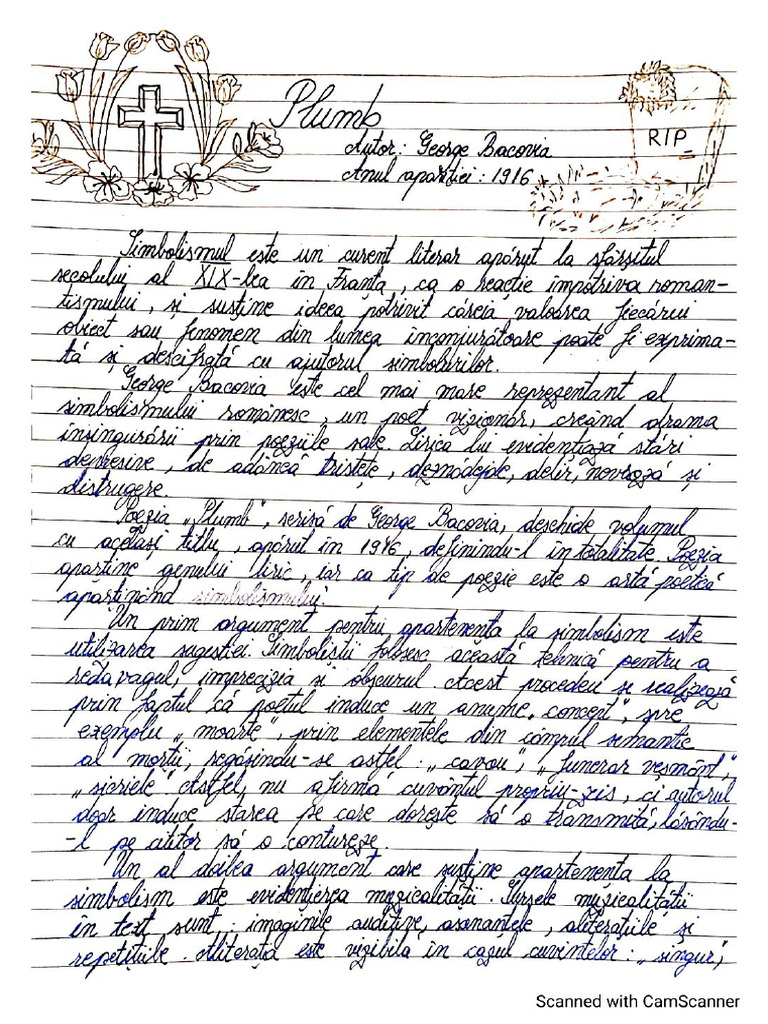 Plumb
RIP
Autor: George Bacovia
Anul apariției: 1916
Simbolismul este un curent literar apărut la sfârșitul
secolului al XIX-lea în Franța, ca o reacție împotriva roman-
tismului, și susține ideea potrivit căreia valoarea fiecărui
obiect sau fenomen din lumea înconjurătoare poate fi exprima-
tă și descifrată cu ajutorul simbolurilor.
George Bacovia este cel mai mare reprezentant al
simbolismului românesc, un poet vizionar, creând drama
însingurării prin poeziile sale. Lirica lui evidențiază stări
depresive, de adâncă tristețe, deznădejde, delir, nevroză și
distrugere.
Poezia „Plumb", scrisă de George Bacovia, deschide volumul
cu același titlu, apărut în 1916, definindu-l în totalitate. Poezia
aparține genului liric, iar ca tip de poezie este o artă poetică
aparținând simbolismului.
Un prim argument pentru apartenența la simbolism este
utilizarea sugestiei. Simboliștii folosesc această tehnică pentru a
reda vagul, imprecizia și obscurul. Acest procedeu se realizează
prin faptul că poetul induce un anume „concept", spre
exemplu „moarte", prin elementele din câmpul semantic
al morții, regăsindu-se astfel: „cavou", „funerar veșmânt",
„sicriele". Astfel, nu afirmă cuvântul propriu-zis, ci autorul
doar induce starea pe care dorește să o transmită, lăsându-
-l pe cititor să o contureze.
Un al doilea argument care susține apartenența la
simbolism este evidențierea muzicalității. Sursele muzicalității
în text sunt: imaginile auditive, asonanțele, aliterațiile și
repetițiile. Aliterația este vizibilă în cazul cuvintelor: „singur",
Scanned with CamScanner